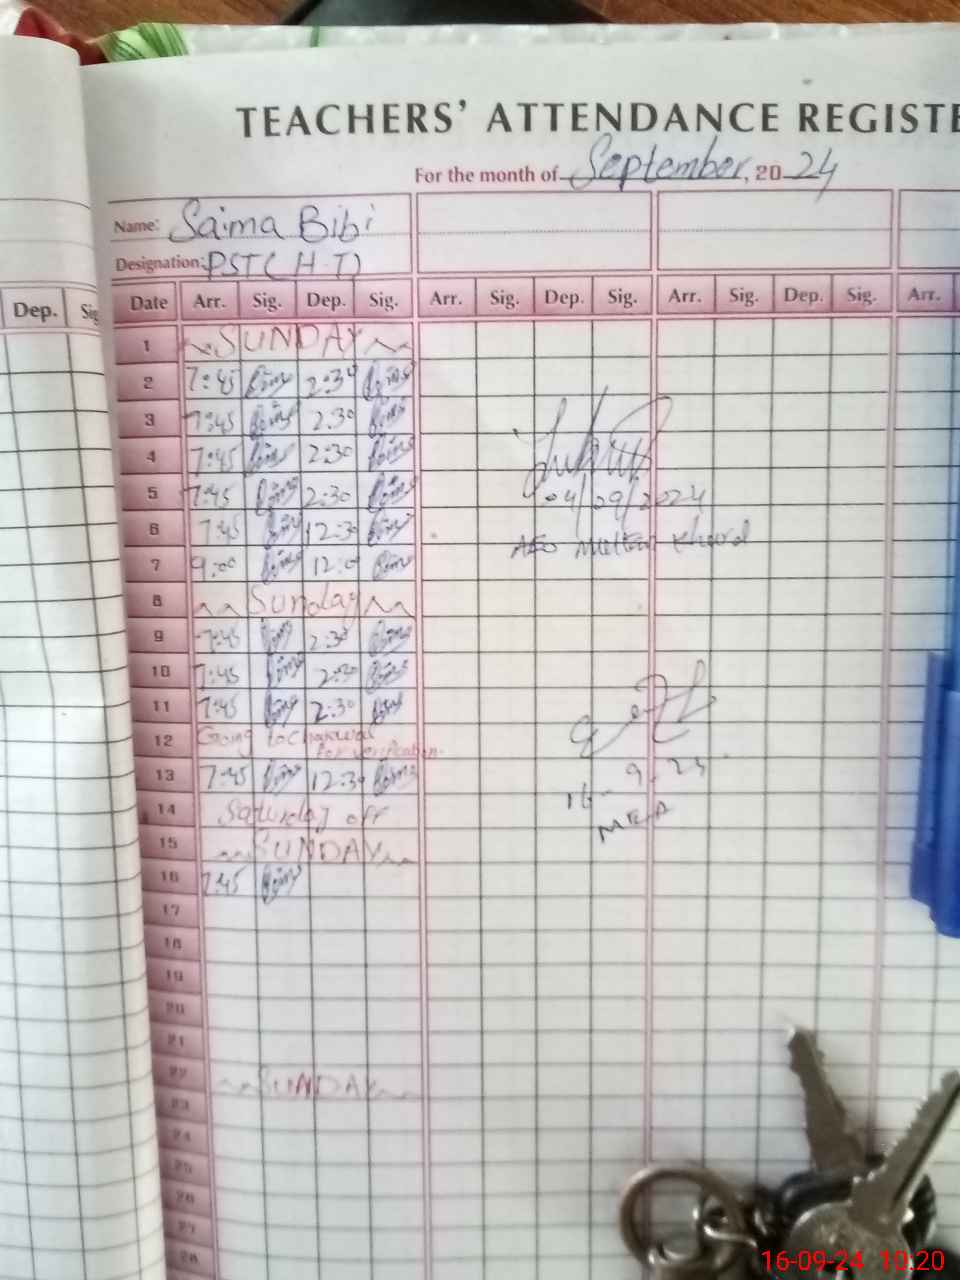 TEACHERS' ATTENDANCE REGISTE
For the month of September, 2024
Name: Saima Bibi
Designation: PST (H.T)
Dep. Sig
Date Arr. Sig. Dep. Sig. Arr. Sig. Dep. Sig. Arr. Sig. Dep. Sig. Arr.
1 SUNDAY
2 7:45 2:30
3 7:45 2:30
4 7:45 2:30
5 7:45 2:30
04/09/2024
6 7:45 12:30
AEO Multan Khurd
7 9:00 12:00
8 Sunday
9 7:45 2:30
10 7:45 2:30
11 7:45 2:30
12 Going to chakwal
For verification
13 7:45 12:30
16-9-24
14 Saturday off
MEA
15 SUNDAY
16 7:45
17
18
19
20
21
22 SUNDAY
23
24
25
26
27
28
16-09-24 10:20